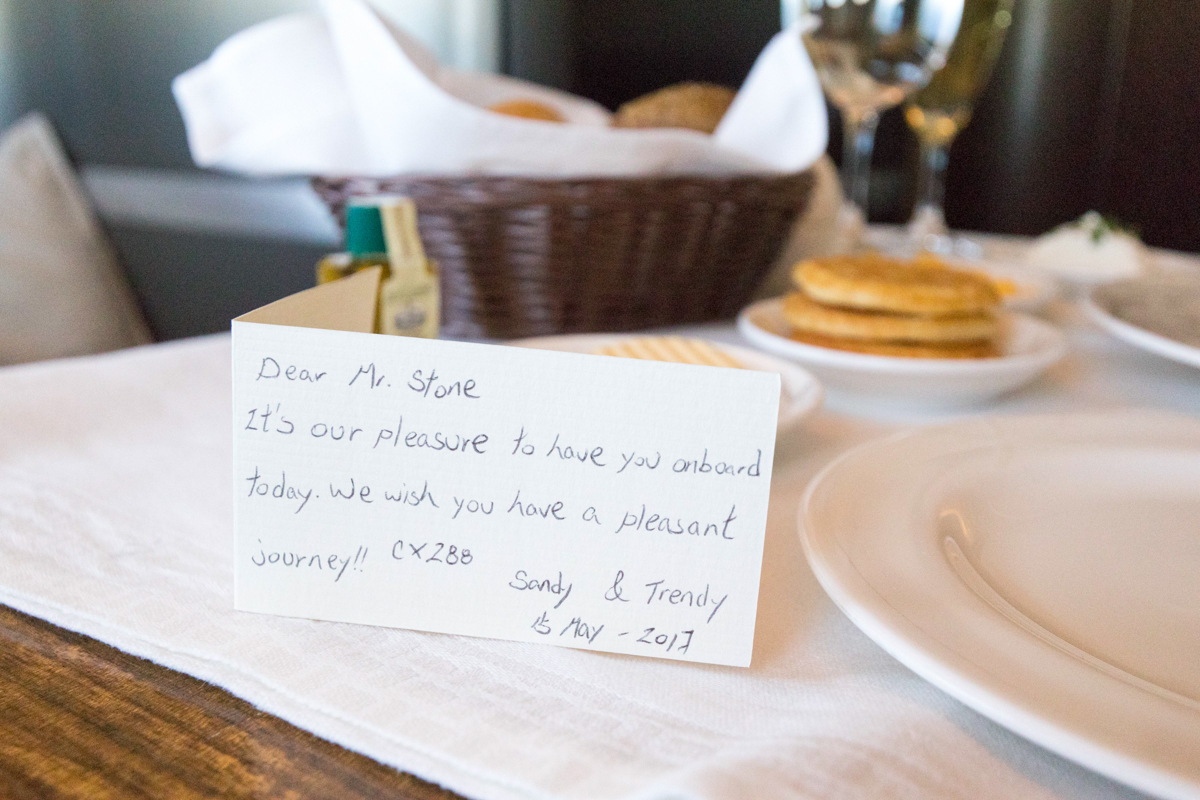 Dear Mr. Stone
It's our pleasure to have you onboard
today. We wish you have a pleasant
journey!! CX288
Sandy & Trendy
15 May - 2017